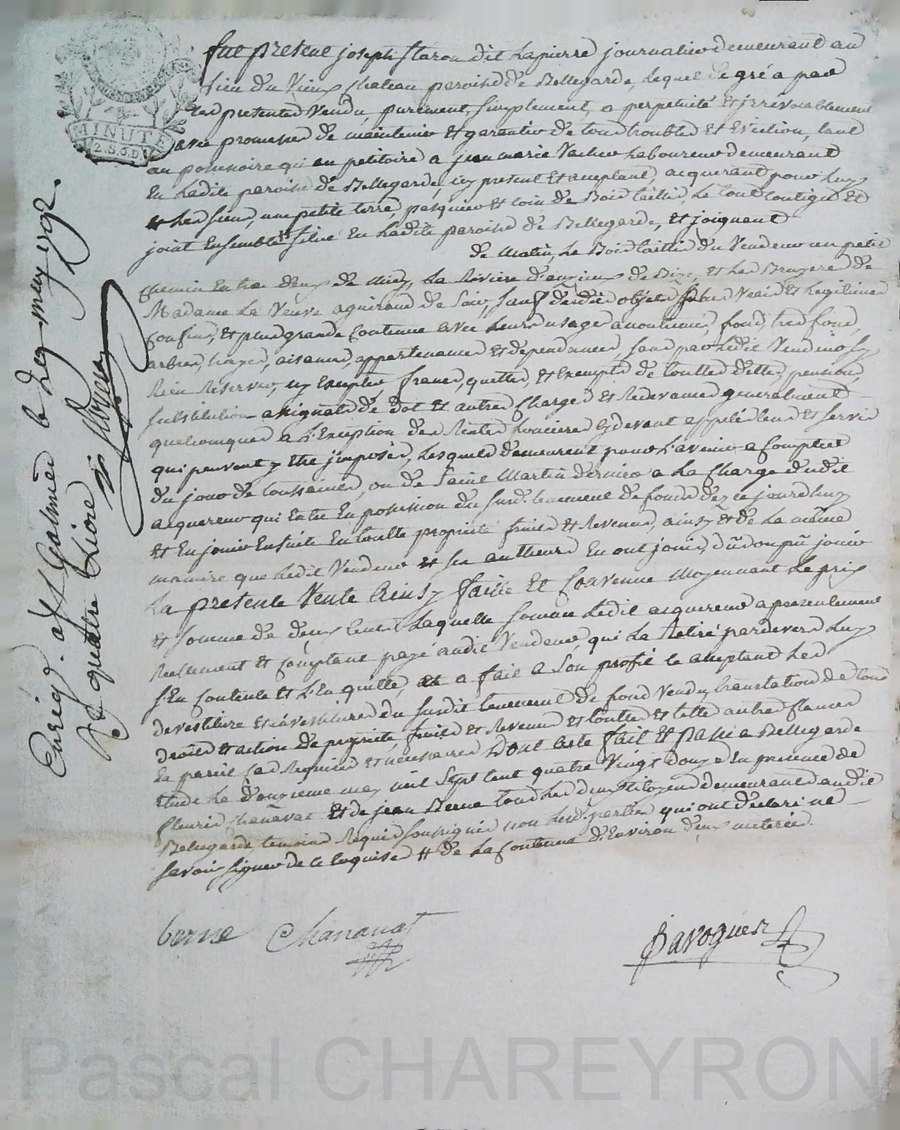 MINUTE
2.S.6.D
fut present joseph staron dit Lapierre journalier demeurant au
lieu du Vieux chateau paroisse de Bellegarde, lequel de gré a par
ces presentes Vendu, purement, simplement, a perpetuité et irrevocablement
avec promesse de maintenir et garantir de tous troubles et Eviction, tant
au possessoire qui au petitoire a jean marie Vacher Laboureur demeurant
En Ladite paroisse de Bellegarde, icy present et acceptant, acquerant pour luy
et Les siens, un petite terre, pasquier et coin de Bois taillis, Le tout contigu et
joint Ensemble situé En Ladite paroisse de Bellegarde, et joignant
de matin, Le Bois taillis du Vendeur un petit
chemin Entre deux de midy, La Rivière de et Les Bruyere de
Madame La Veuve de soir, sauf desdits objets Leurs Vrais et Legitimes
confins, et plus grande contenue avec Leurs usages accoutumés, fond, tres fond,
arbres, hayes, aisances, appartenances et dependances, sans par Ledit Vendeur s'y
Rien Reserver, ny Excepter franc, quitte, et Exempt de touttes dettes, pension,
substitution assignats de dot et autres charges et Redevances generalement
quelconques a L'Exception des Rentes foncieres cy devant appellé cens et servis
qui peuvent y etre imposés, Lesquels demeurent pour L'avenir a compter
du jour de toussaint, ou de Saint Martin dernier a La charge dudit
acquereur qui Entre En possession du susdit tenement de fonds dez ce jourdhuy
et En jouir Ensuite En toutte proprieté fruits et Revenus, ainsy et de La même
maniere que Ledit Vendeur et ses autheurs En ont jouis, dû ou pû jouir
La presente Vente Ainsy faitte et Convenue moyennant Le prix
et somme de deux cents Laquelle somme Ledit acquereur a presentement
Reellement et comptant payé audit Vendeur, qui La Retiré pardevers Luy
s'En contente et L'En quitte, et a fait a son profit Le acceptant Les
devestiture et investiture du susdit tenement de fond Vendu, translation de tous
droits et action de proprieté fruits et Revenus et touttes et telle autres clauses
En pareil cas Requises et necessaires Dont acte fait et passé a Bellegarde
Etude Le douzieme may mil Sept Cent quatre Vingt douze En presence de
fleurie chanavat et de jean Berne tous Les deux citoyens demeurant audit
Bellegarde temoins Requis soussignés non Lesd. parties qui ont declaré ne
savoir signer de ce Enquises # de La contenue d'Environ deux meterée.
berne
Chanavat
Baroguer
Enreg. a St Galmier le dix may 1792.
R. quatre Livre
Pascal CHAREYRON